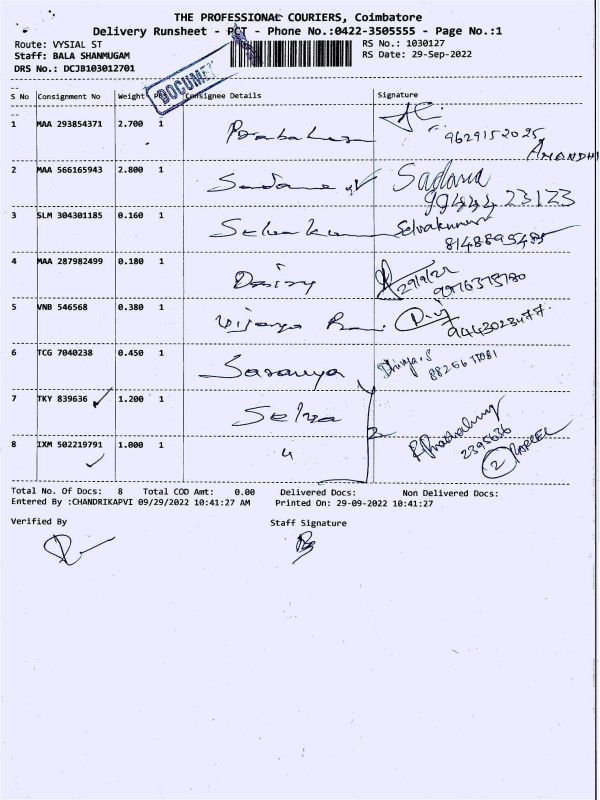 THE PROFESSIONAL COURIERS, Coimbatore
Delivery Runsheet - PCT - Phone No.:0422-3505555 - Page No.:1
Route: VYSIAL ST RS No.: 1030127
Staff: BALA SHANMUGAM RS Date: 29-Sep-2022
DRS No.: DCJB103012701
DOCUMENT
S No Consignment No Weight Consignee Details Signature
1 MAA 293854371 2.700 1 Prabakar 9629152025
2 MAA 566165943 2.800 1 Sadana V Sadana
99444 23123
3 SLM 304301185 0.160 1 Selvakumar Selvakumar
8148895485
4 MAA 287982499 0.180 1 Daisy 29/9/22
5 VNB 546568 0.380 1 Vijaya 9443023477
6 TCG 7040238 0.450 1 Saranya Dhivya.S
7 TKY 839636 1.200 1 Selva
2395636
8 IXM 502219791 1.000 1 2 PARCEL
Total No. Of Docs: 8 Total COD Amt: 0.00 Delivered Docs: Non Delivered Docs:
Entered By :CHANDRIKAPVI 09/29/2022 10:41:27 AM Printed On: 29-09-2022 10:41:27
Verified By Staff Signature